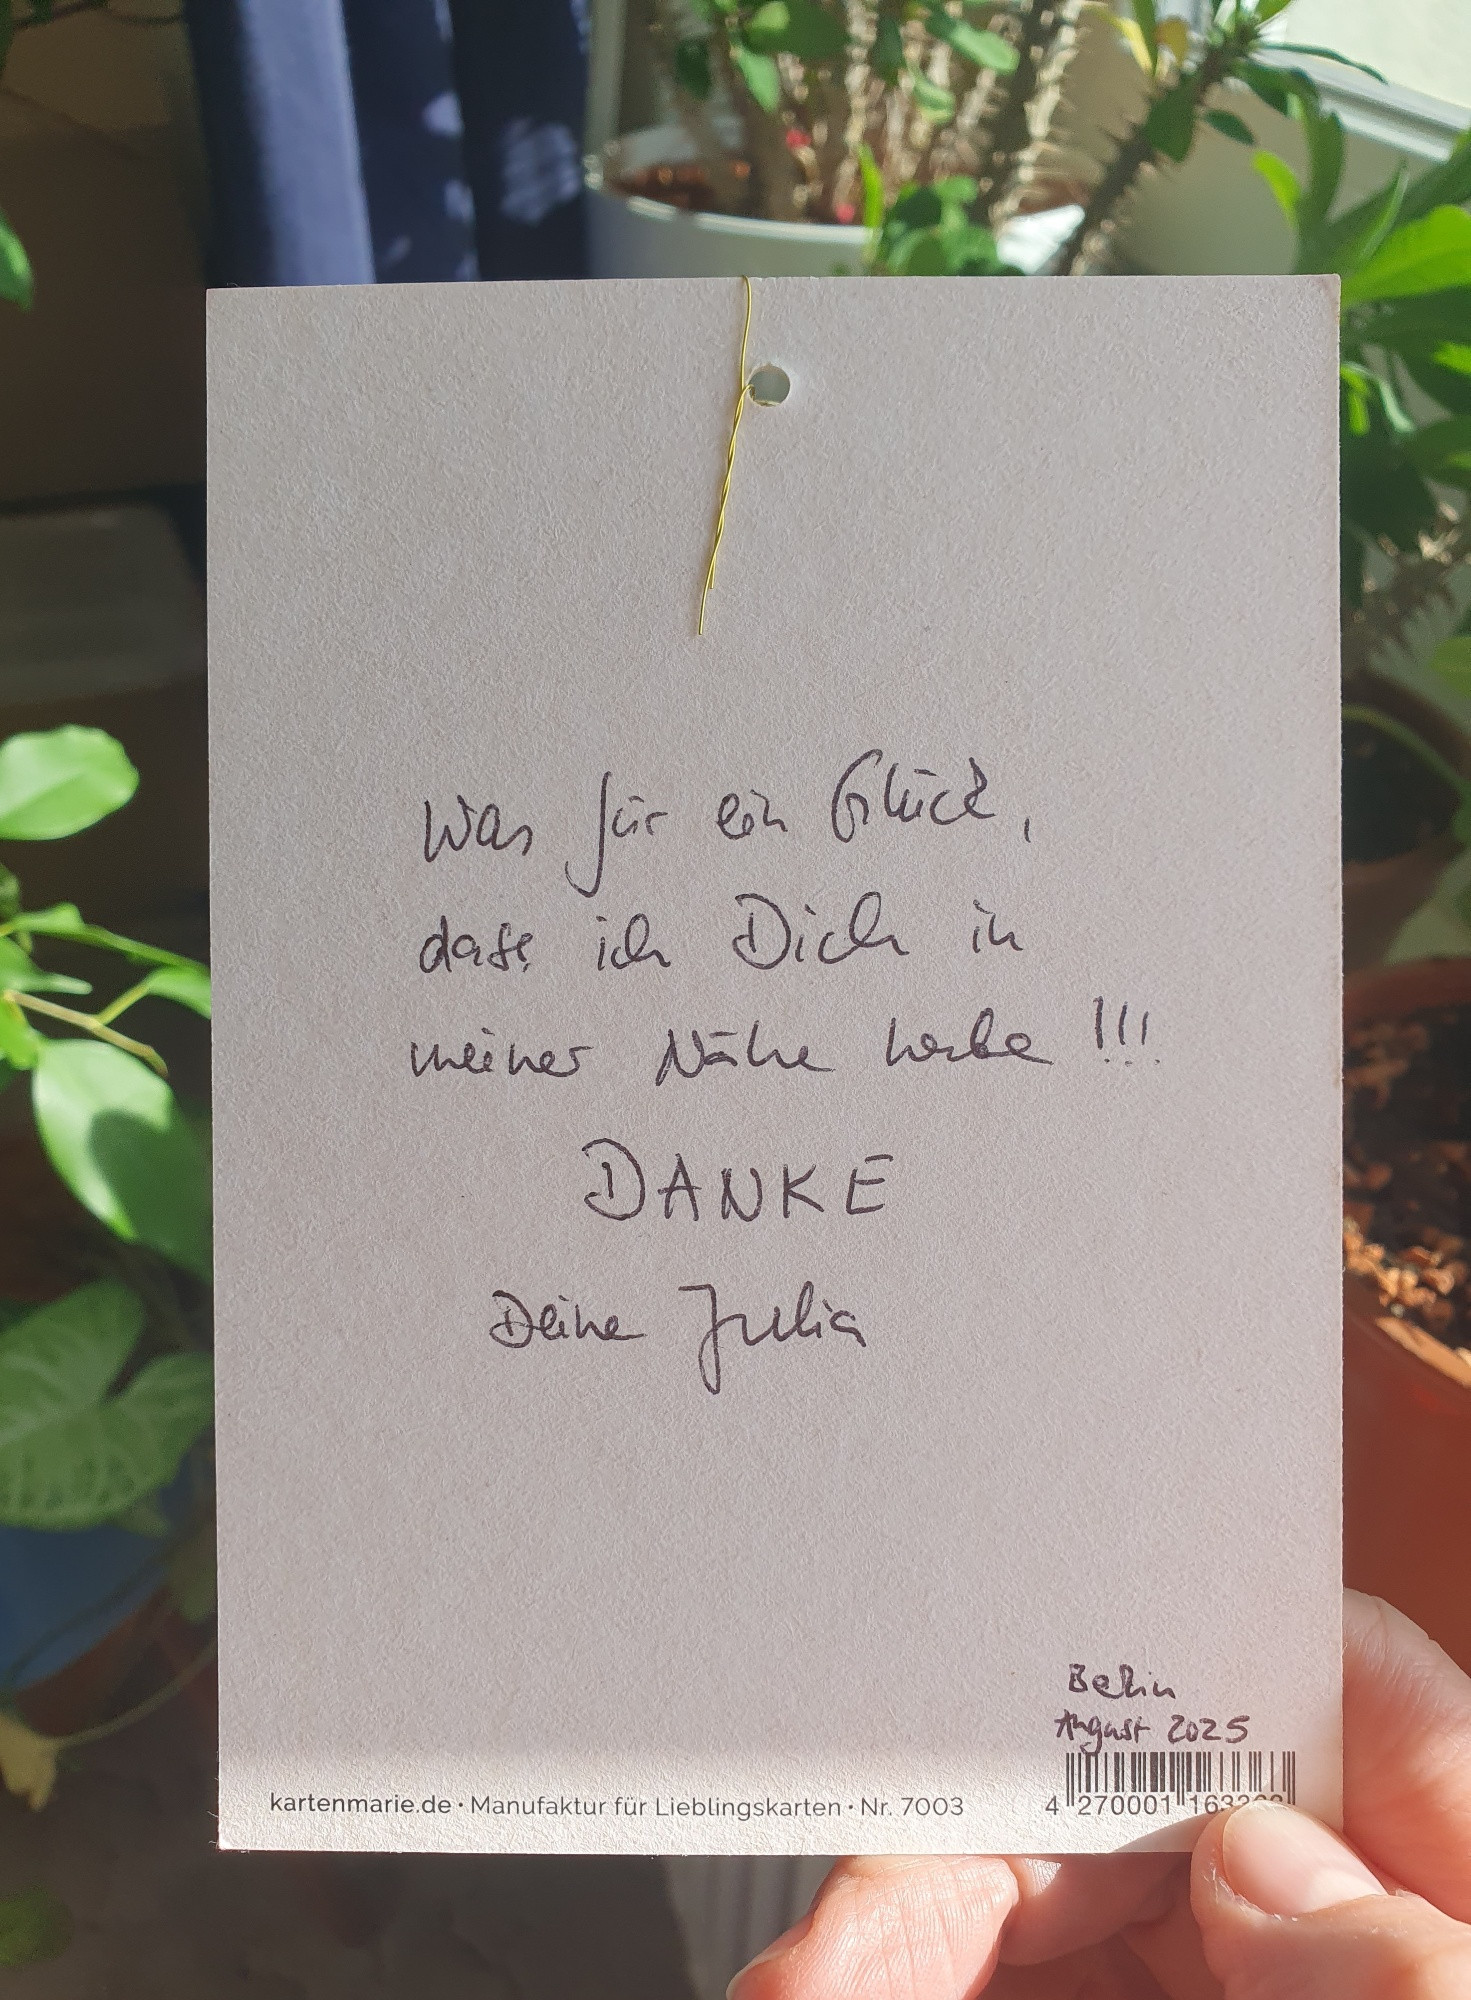 Was für ein Glück,
dass ich Dich in
meiner Nähe habe !!!
DANKE
Deine Julia
Berlin
August 2025
kartenmarie.de · Manufaktur für Lieblingskarten · Nr. 7003
4 270001